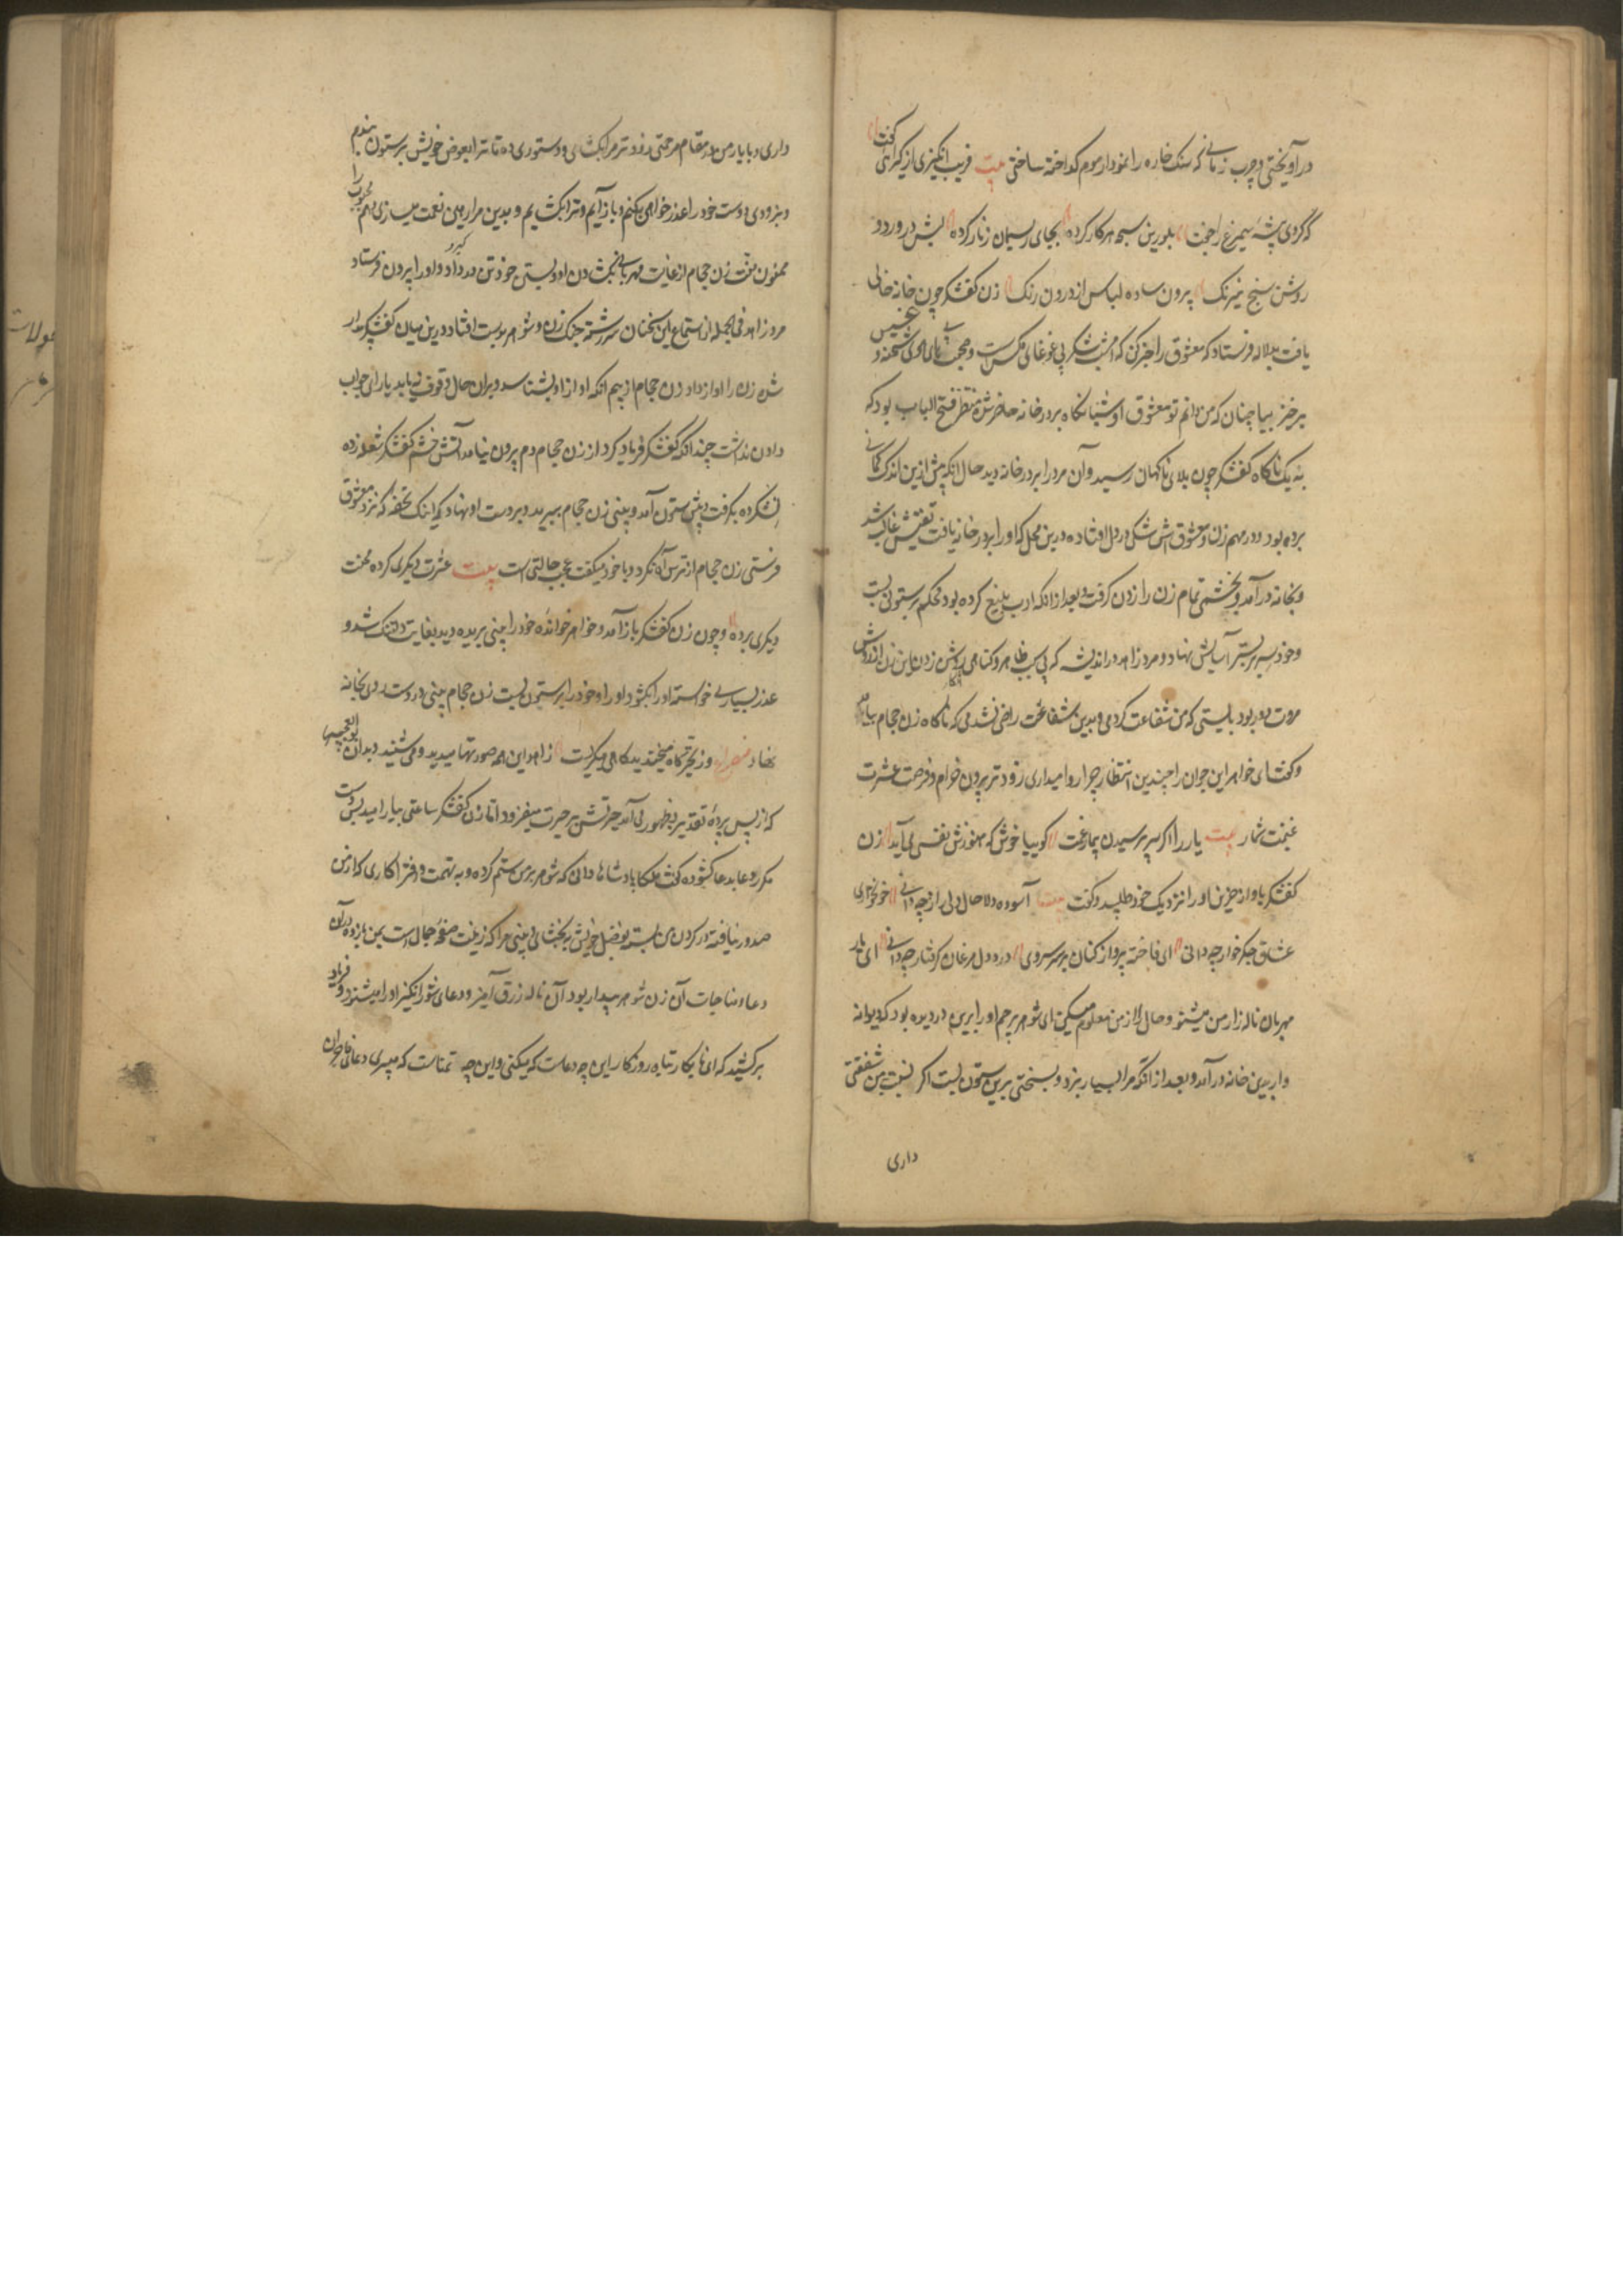 در آویختی و چرب زبانی که سنک خاره را نمودار موم کداخته ساختی بیت فریب انکیزی از کرائی کفت
که کردی پشه سیمرغ را جفت بلورین سبحه در کار کرده بجای ریسمان زنار کرده لبش در ورد و
روش سنج نیرنک برون ساده لباس از درون رنک زن کفشکر چون خانه خالی
یافت بدلاله فرستاد که معشوق را خبر کن که امشب شکر بی غوغای مکس است و صحبت بی های هوی شحنه و عسس
برخیز بیا چنان که من دانم تو معشوق او شبانکاه بر در خانه حاضر شده منتظر فتح الباب بود که
ناکاه کفشکر چون بلای ناکهان رسید و آن مرد را بر در خانه دید حال انکه پیش ازین اندک کمانی
برده بود و در مهم زن و معشوق اش شکی در دل افتاده درین محل که او را بر در خانه یافت غالب شد
بخانه در آمد و بخشمی تمام زن را زدن کرفت و بعد از انکه ادب بلیغ کرده بود محکم بر ستونی بست
و خود سر بر بستر آسایش نهاد و مرد زاهد در اندیشه که بی سبب ظاهر و کناهی روشن زدن این زن از روش
مروت دور بود بایستی که من شفاعت کردمی و بدین شفاعت راضی نشدمی که ناکاه زن حجام بیامد
و کفت ای خواهر این جوان را چندین انتظار چرا روا میداری زودتر برون خرام و فرصت عشرت
غنیمت شمار بیت یار را اکر سر پرسیدن بیمار غمت کو بیا خوش که هنوزش نفسی می آید زن
کفشکر باواز حزین او را نزدیک خود طلبید و کفت آسوده دلا حال دل زار چه دانی خونخواری
عشاق جکر خوار چه دانی ای فاخته پرواز کنان بر سر سروی درد دل مرغان کرفتار چه دانی ای یار
مهربان ناله زار من میشنو و حال از من معلوم کن این شوهر بیرحم او را برین در دیده بود که دیوانه
وار بدین خانه در آمد و بعد از انکه مرا بسیار بزد و بسختی برین ستون بست اکر نسبت بمن شفقتی
داری
داری و با یار من در مقام مرحمتی زودتر مرا بکشای و دستوری ده تا ترا بعوض خویش بر ستون بندم
و بزودی دوست خود را عذر خواهی بکنم و باز آیم و ترا بکشایم و بدین مرا رهین نعمت میسازی و هم محبوب را
ممنون منت زن حجام از غایت مهربانی بکشادن او و بستن خود تن در داد و او را برون فرستاد
مرد زاهد فی الجمله از استماع این سخنان سررشته جنک زن و شوهر بدست افتاد درین میان کفشکر بیدار
شده زن را اواز داد زن حجام از بیم انکه او از او بشناسد و بران حال وقوف یابد یارای جواب
دادن نداشت چندانکه کفشکر فریاد کرد از زن حجام دم برون نیامد آتش خشم کفشکر شعله زده
نشکرده بکرفت و پیش ستون آمد و بینی زن حجام ببرید و بر دست او نهاد که اینک تحفه که نزد معشوق
فرستی زن حجام از ترس آه نکرد و با خود میکفت عجب حالتی است بیت عشرت دیکری کرده محنت
دیکری برده و چون زن کفشکر باز آمد و خواهر خوانده خود را بینی بریده دید بغایت دلتنک شد و
عذر بسیار خواسته او را بکشود و او را و خود را بر ستون بست زن حجام بینی در دست روی بخانه
نهاد مصراع و ز تحیر کاه میخندید کاهی میکریست زاهد این همه صورتها میدید و می شنید و بدان بوالعجبیها
که از پس پرده تقدیر بظهور می آمد حیرتش بر حیرت میفزود اما زن کفشکر ساعتی بیارامید پس دست
مکر و عا بدعا کشوده کفت ملکا پادشاها دانی که شوهر بر من ستم کرده و به تهمت و افترا کاری که از من
صدور نیافته در کردن من بسته بفضل خویش ببخشای و بینی مرا که زینت صفحه جمال است بمن باز ده در آن
دعا و مناجات آن زن شوهر بیدار بود آن ناله زرق آمیز و دعای شورانکیز او را میشنید و فریاد
برکشید که ای نابکار تباه روزکار این چه دعاست که میکنی و این چه تمناست که میبری دعای فاجران